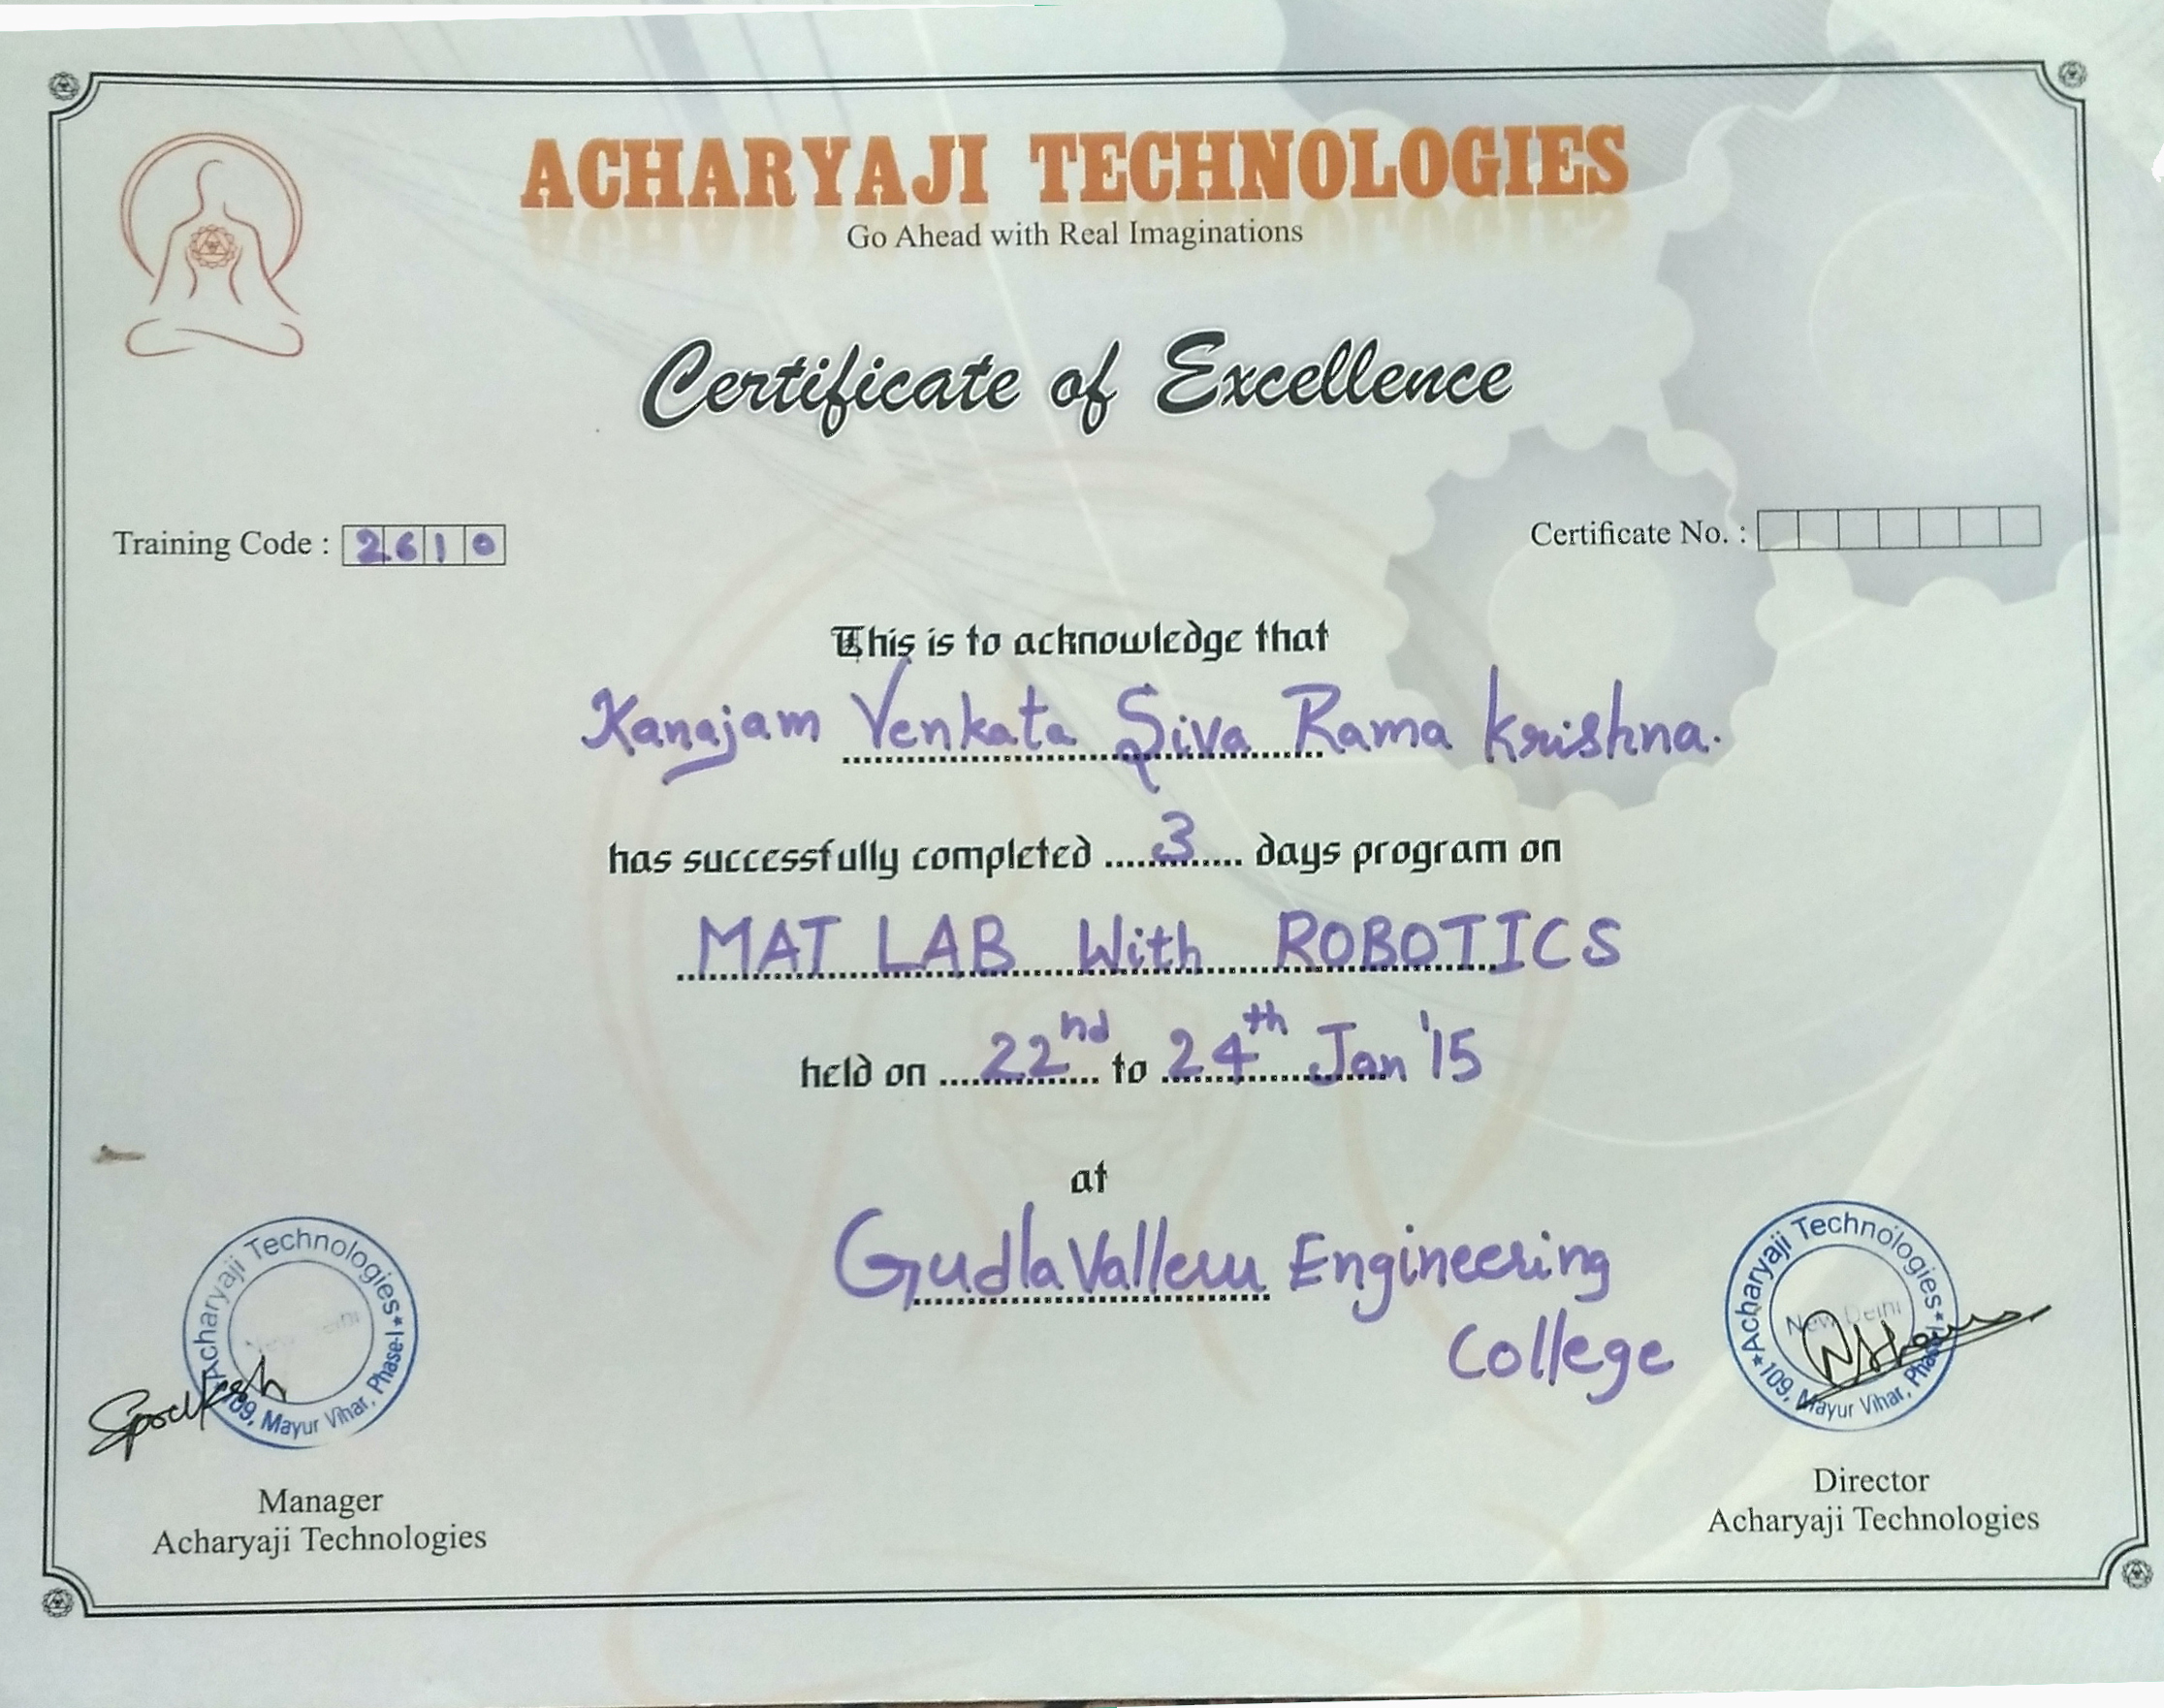 ACHARYAJI TECHNOLOGIES
Go Ahead with Real Imaginations
Certificate of Excellence
Training Code : 2610
Certificate No. :
This is to acknowledge that
Kanajam Venkata Siva Rama Krishna.
has successfully completed 3 days program on
MAT LAB With ROBOTICS
held on 22nd to 24th Jan '15
at
GudlaValleru Engineering
College
Acharyaji Technologies
New Delhi
109, Mayur Vihar, Phase-I
Acharyaji Technologies
New Delhi
109, Mayur Vihar, Phase-I
Manager
Acharyaji Technologies
Director
Acharyaji Technologies